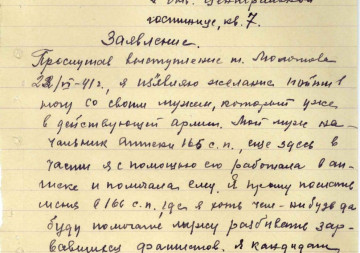 в гор. Центральной
гостинице, кв. 7.
Заявление.
Прослушав выступление т. Молотова
22/VI-41 г., я изъявляю желание пойти в
ногу со своим мужем, который уже
в действующей армии. Мой муж на-
чальник аптеки 166 с.п., еще здесь в
части я с помощью его работала в ап-
теке и помогала ему. Я прошу послать
меня в 166 с.п., где я хоть чем-нибудь да
буду помогать мужу разбивать зар-
вавшихся фашистов. Я кандидат